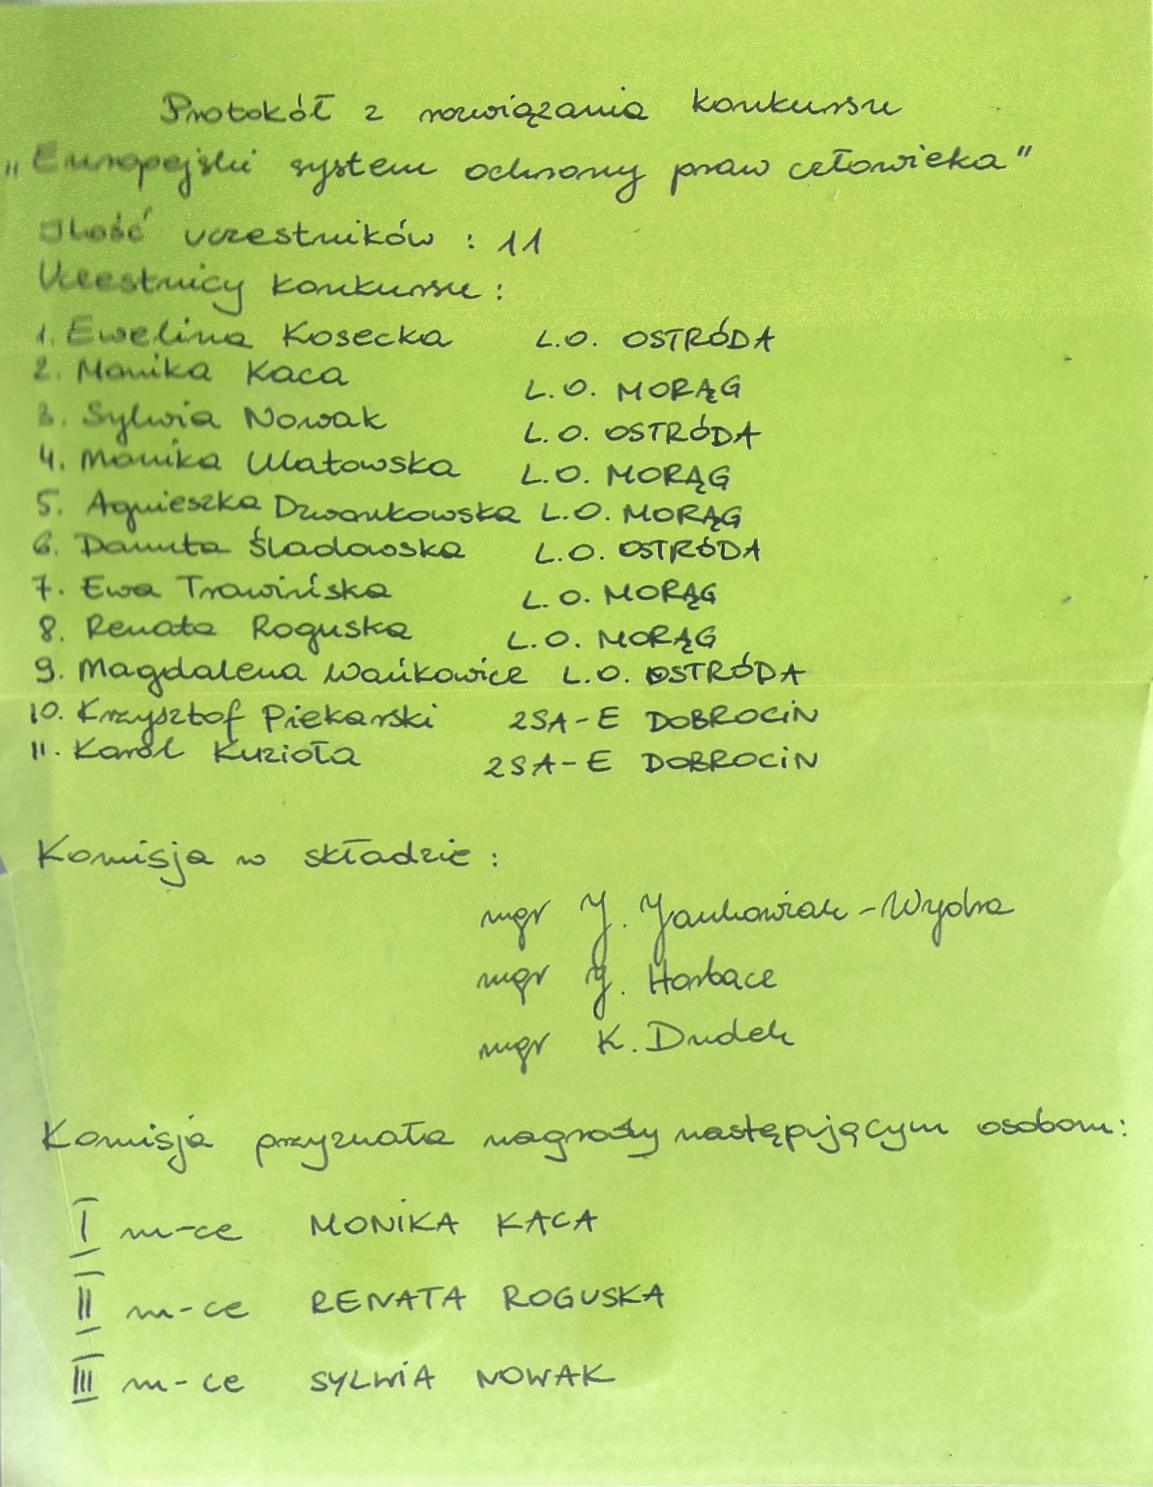 Protokół z rozwiązania konkursu
„Europejski system ochrony praw człowieka"
Ilość uczestników : 11
Uczestnicy konkursu :
1. Ewelina Kosecka L.O. OSTRÓDA
2. Monika Kaca L.O. MORĄG
3. Sylwia Nowak L.O. OSTRÓDA
4. Monika Ulatowska L.O. MORĄG
5. Agnieszka Dzwonkowska L.O. MORĄG
6. Danuta Śladowska L.O. OSTRÓDA
7. Ewa Trawińska L.O. MORĄG
8. Renata Roguska L.O. MORĄG
9. Magdalena Wańkowicz L.O. OSTRÓDA
10. Krzysztof Piekarski ZSA-E DOBROCIN
11. Karol Kuzioła ZSA-E DOBROCIN
Komisja w składzie :
mgr J. Jankowiak-Wydra
mgr J. Harbacz
mgr K. Dudek
Komisja przyznała nagrody następującym osobom:
I m-ce MONIKA KACA
II m-ce RENATA ROGUSKA
III m-ce SYLWIA NOWAK